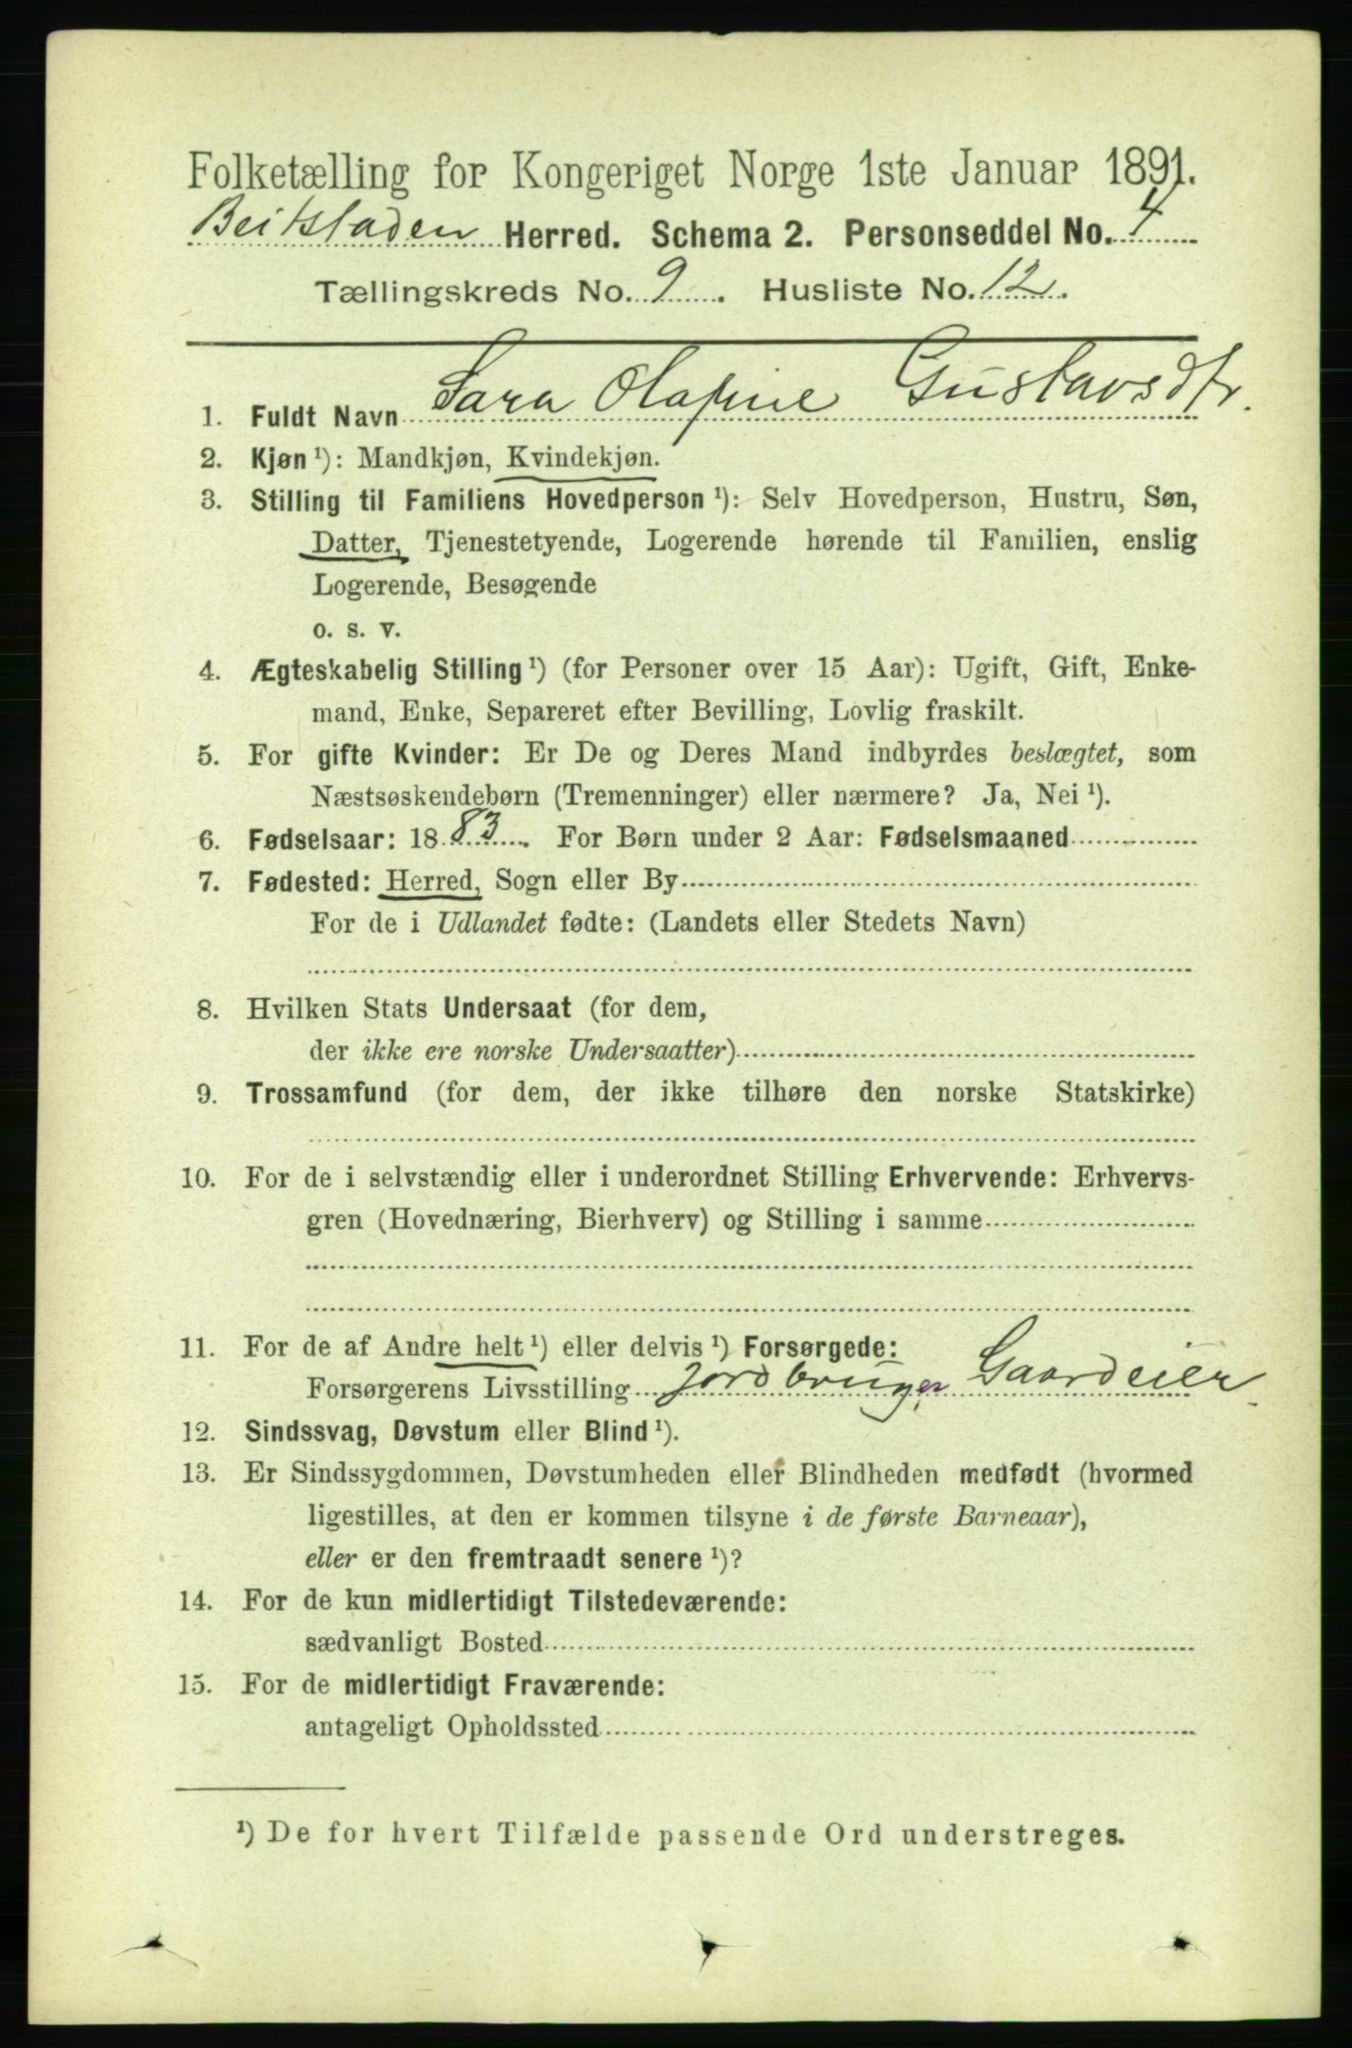 Folketælling for Kongeriget Norge 1ste Januar 1891.
Beitstaden Herred. Schema 2. Personseddel No. 4
Tællingskreds No. 9. Husliste No. 12.
1. Fuldt Navn Sara Olafine Gustavsdtr.
2. Kjøn ¹): Mandkjøn, Kvindekjøn.
3. Stilling til Familiens Hovedperson ¹): Selv Hovedperson, Hustru, Søn,
Datter, Tjenestetyende, Logerende hørende til Familien, enslig
Logerende, Besøgende
o. s. v.
4. Ægteskabelig Stilling ¹) (for Personer over 15 Aar): Ugift, Gift, Enke-
mand, Enke, Separeret efter Bevilling, Lovlig fraskilt.
5. For gifte Kvinder: Er De og Deres Mand indbyrdes beslægtet, som
Næstsøskendebørn (Tremenninger) eller nærmere? Ja, Nei ¹).
6. Fødselsaar: 1883. For Børn under 2 Aar: Fødselsmaaned
7. Fødested: Herred, Sogn eller By
For de i Udlandet fødte: (Landets eller Stedets Navn)
8. Hvilken Stats Undersaat (for dem,
der ikke ere norske Undersaatter)
9. Trossamfund (for dem, der ikke tilhøre den norske Statskirke)
10. For de i selvstændig eller i underordnet Stilling Erhvervende: Erhvervs-
gren (Hovednæring, Bierhverv) og Stilling i samme
11. For de af Andre helt ¹) eller delvis ¹) Forsørgede:
Forsørgerens Livsstilling Jordbruger Gaardeier
12. Sindssvag, Døvstum eller Blind ¹).
13. Er Sindssygdommen, Døvstumheden eller Blindheden medfødt (hvormed
ligestilles, at den er kommen tilsyne i de første Barneaar),
eller er den fremtraadt senere ¹)?
14. For de kun midlertidigt Tilstedeværende:
sædvanligt Bosted
15. For de midlertidigt Fraværende:
antageligt Opholdssted
¹) De for hvert Tilfælde passende Ord understreges.